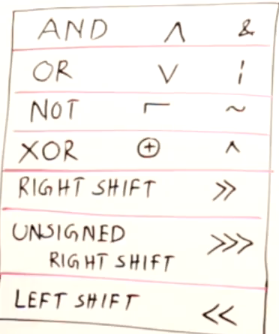 AND ∧ &
OR ∨ ¦
NOT ⌐ ~
XOR ⊕ ^
RIGHT SHIFT >>
UNSIGNED
RIGHT SHIFT >>>
LEFT SHIFT <<